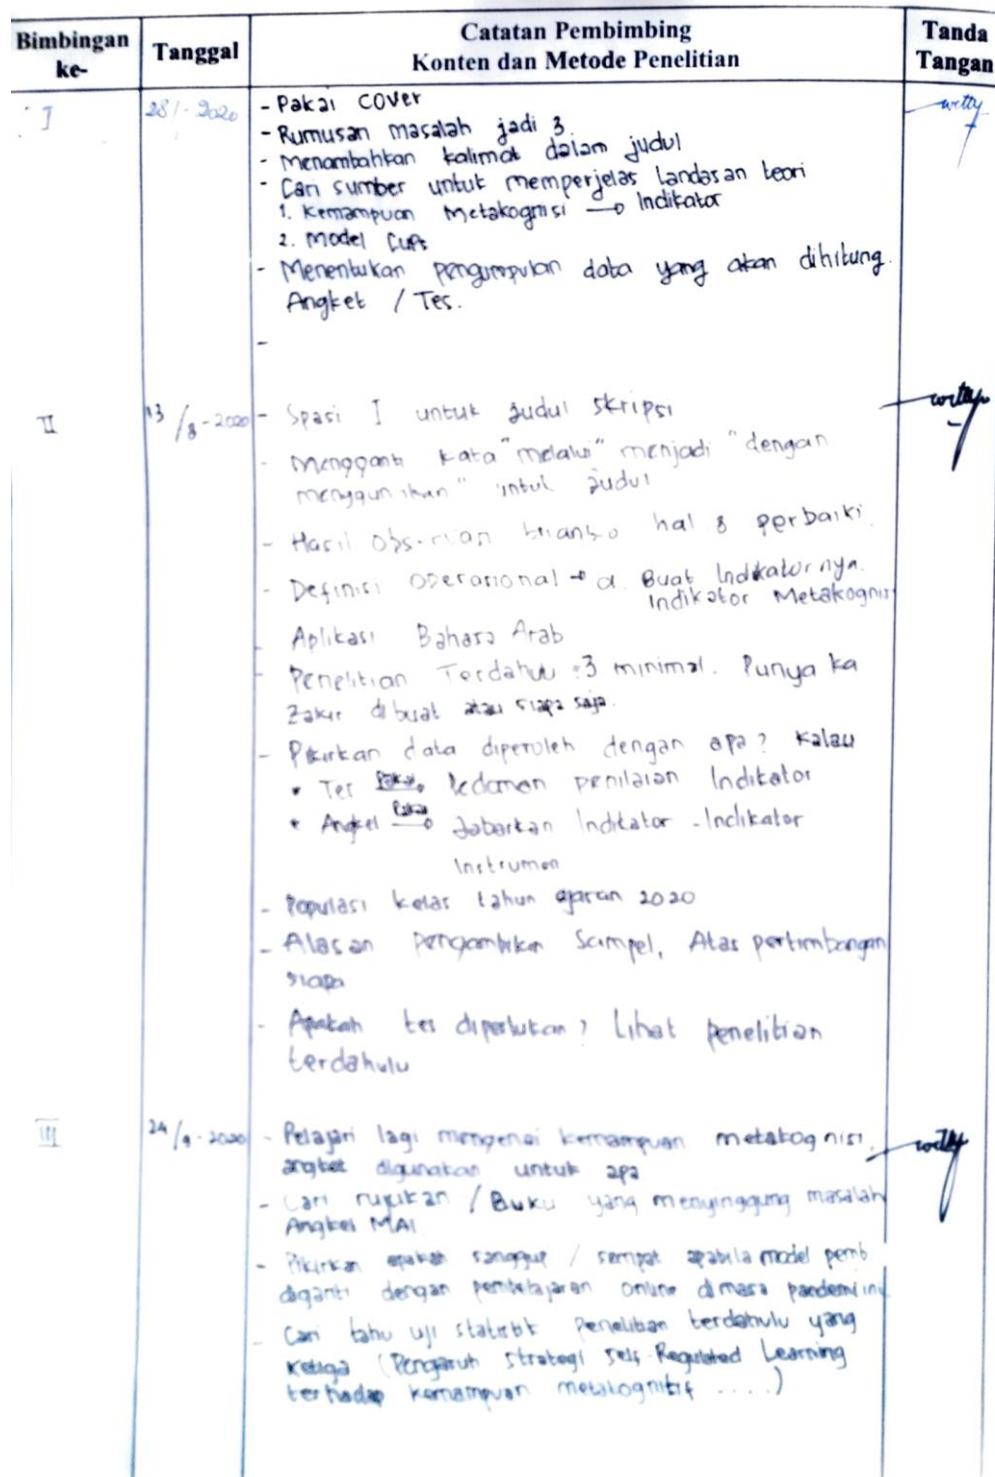 Bimbingan ke-
Tanggal
Catatan Pembimbing
Konten dan Metode Penelitian
Tanda Tangan
I
28/ - 2020
- Pakai cover
- Rumusan masalah jadi 3
- Menambahkan kalimat dalam judul
- Cari sumber untuk memperjelas Landasan teori
1. Kemampuan Metakognisi → Indikator
2. Model CUPs
- Menentukan pengumpulan data yang akan dihitung.
Angket / Tes.
-
II
13/8-2020
- Spasi I untuk Judul skripsi
- Mengganti kata "melalui" menjadi "dengan
menggunakan" untuk judul
- Hasil observasi hal 8 perbaiki
- Definisi operasional → a. Buat Indikatornya.
Indikator Metakognisi
- Aplikasi Bahasa Arab
- Penelitian Terdahulu :3 minimal. Punya ka
Zakir dibuat atau siapa saja.
- Pikirkan data diperoleh dengan apa? Kalau
• Tes pakai → Pedoman penilaian Indikator
• Angket pakai → Jabarkan Indikator - Indikator
Instrumen
- Populasi kelas tahun ajaran 2020
- Alasan pengambilan Sampel, Atas pertimbangan
siapa
- Apakah tes diperlukan? Lihat penelitian
terdahulu
III
24/9-2020
- Pelajari lagi mengenai kemampuan metakognisi,
angket digunakan untuk apa
- Cari rujukan / Buku yang menyinggung masalah
Angket MAI
- Pikirkan apakah sanggup / sempat apabila model pemb
diganti dengan pembelajaran online dimasa pandemi ini
- Cari tahu uji statistik Penelitian terdahulu yang
ketiga (Pengaruh strategi self-Regulated Learning
terhadap kemampuan metakognitif ....)